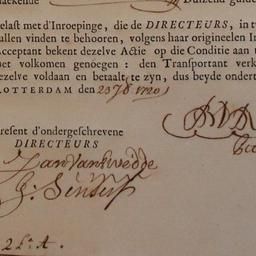 Duizend guld
elast met d'Inroepinge, die de DIRECTEURS, in t
ullen vinden te behooren, volgens haar origineelen In
Acceptant bekent dezelve Actie op die Conditie aan t
et volkomen genoegen: den Transportant verk
ezelve voldaan en betaalt te zyn, dus beyde ondert
OTTERDAM den 1720
resent d'ondergeschrevene
DIRECTEURS
Jan van